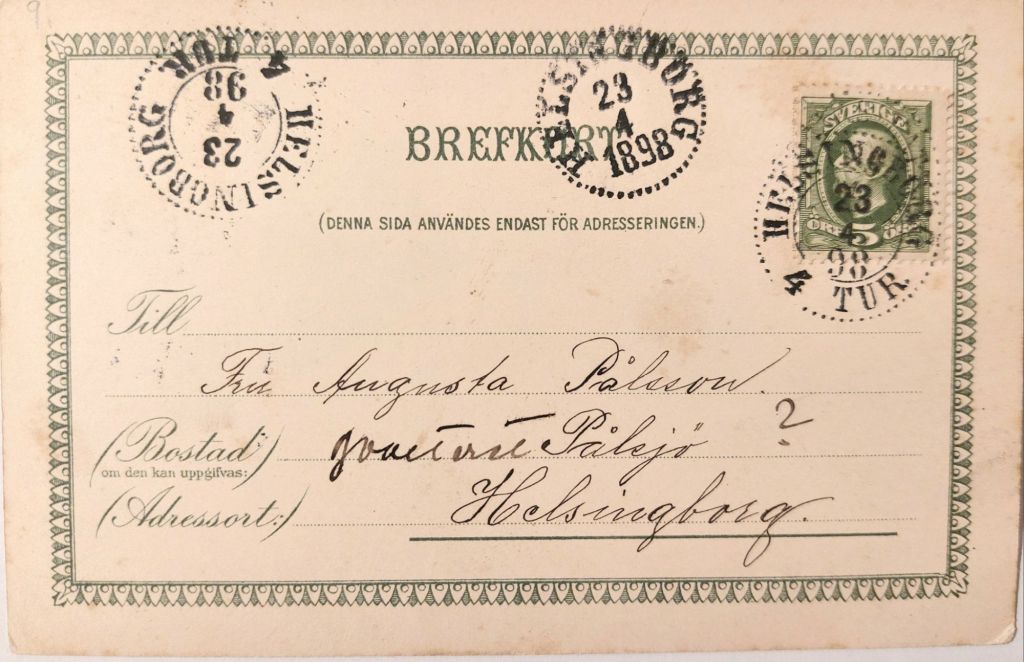 9
HELSINGBORG 4 TUR
23
4
98
HELSINGBORG
23
4
1898
SVERIGE
5
HELSINGBORG
23
4
98
4 TUR
BREFKORT
(DENNA SIDA ANVÄNDES ENDAST FÖR ADRESSERINGEN.)
Till
Fru Augusta Pålsson.
(Bostad) Pålsjö ?
om den kan uppgifvas:
(Adressort:) Helsingborg.